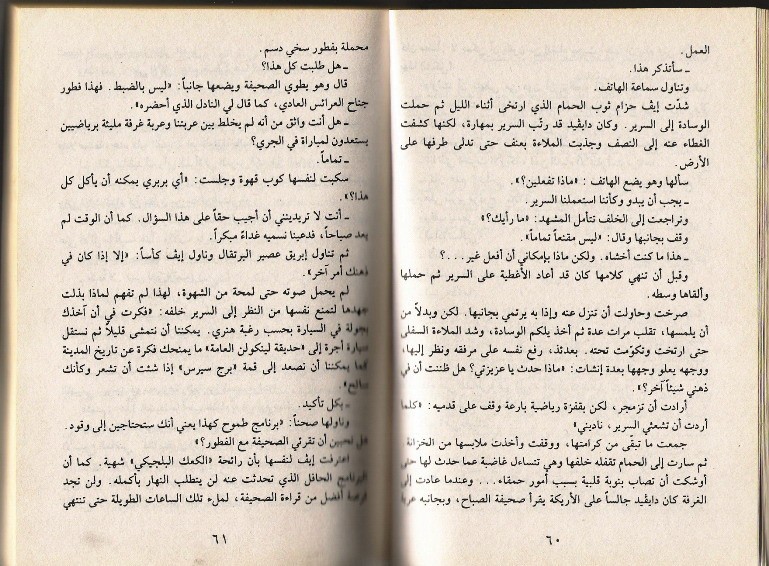 العمل.
ـ سأتذكر هذا.
وتناول سماعة الهاتف.
شدّت إيڤ حزام ثوب الحمام الذي ارتخى أثناء الليل ثم حملت
الوسادة إلى السرير. وكان دايڤيد قد رتّب السرير بمهارة، لكنها كشفت
الغطاء عنه إلى النصف وجذبت الملاءة بعنف حتى تدلى طرفها على
الأرض.
سألها وهو يضع الهاتف: «ماذا تفعلين؟».
ـ يجب أن يبدو وكأننا استعملنا السرير.
وتراجعت إلى الخلف تتأمل المشهد: «ما رأيك؟»
وقف بجانبها وقال: «ليس مقنعاً تماماً».
ـ هذا ما كنت أخشاه. ولكن ماذا بإمكاني أن أفعل غير...؟
وقبل أن تنهي كلامها كان قد أعاد الأغطية على السرير ثم حملها
وألقاها وسطه.
صرخت وحاولت أن تنزل عنه وإذا به يرتمي بجانبها. لكن وبدلاً من
أن يلمسها، تقلب مرات عدة ثم أخذ يلكم الوسادة، وشد الملاءة السفلى
حتى ارتخت وتكوّمت تحته. بعدئذ، رفع نفسه على مرفقه ونظر إليها،
ووجهه يعلو وجهها بعدة إنشات: «ماذا حدث يا عزيزتي؟ هل ظننت أن في
ذهني شيئاً آخر؟».
أرادت أن تزمجر، لكن بقفزة رياضية بارعة وقف على قدميه: «كلما
أردت أن تشعثي السرير، ناديني»
جمعت ما تبقّى من كرامتها، ووقفت وأخذت ملابسها من الخزانة.
ثم سارت إلى الحمام تقفله خلفها وهي تتساءل غاضبة عما حدث لها حتى
أوشكت أن تصاب بنوبة قلبية بسبب أمور حمقاء... وعندما عادت إلى
الغرفة كان دايڤيد جالساً على الأريكة يقرأ صحيفة الصباح، وبجانبه عربة
٦٠
محملة بفطور سخي دسم.
ـ هل طلبت كل هذا؟
قال وهو يطوي الصحيفة ويضعها جانباً: «ليس بالضبط. فهذا فطور
جناح العرائس العادي، كما قال لي النادل الذي أحضره».
ـ هل أنت واثق من أنه لم يخلط بين عربتنا وعربة غرفة مليئة برياضيين
يستعدون لمباراة في الجري؟
ـ تماماً.
سكبت لنفسها كوب قهوة وجلست: «أي بربري يمكنه أن يأكل كل
هذا؟».
ـ أنت لا تريدينني أن أجيب حقاً على هذا السؤال. كما أن الوقت لم
يعد صباحاً، فدعينا نسميه غداءً مبكراً.
ثم تناول إبريق عصير البرتقال وناول إيڤ كأساً: «إلا إذا كان في
ذهنك أمر آخر».
لم يحمل صوته حتى لمحة من الشهوة، لهذا لم تفهم لماذا بذلت
جهدها لتمنع نفسها من النظر إلى السرير خلفه: «فكرت في أن آخذك
بجولة في السيارة بحسب رغبة هنري. يمكننا أن نتمشى قليلاً ثم نستقل
سيارة أجرة إلى «حديقة لينكولن العامة» ما يمنحك فكرة عن تاريخ المدينة
كما يمكننا أن نصعد إلى قمة «برج سيرس» إذا شئت أن تشعر وكأنك
ـ بكل تأكيد.
وناولها صحناً: «برنامج طموح كهذا يعني أنك ستحتاجين إلى وقود.
هل تحبين أن تقرئي الصحيفة مع الفطور؟»
اعترفت إيڤ لنفسها بأن رائحة «الكعك البلجيكي» شهية. كما أن
البرنامج الحافل الذي تحدثت عنه لن يتطلب النهار بأكمله. ولن تجد
فرصة أفضل من قراءة الصحيفة، لملء تلك الساعات الطويلة حتى تنتهي
٦١